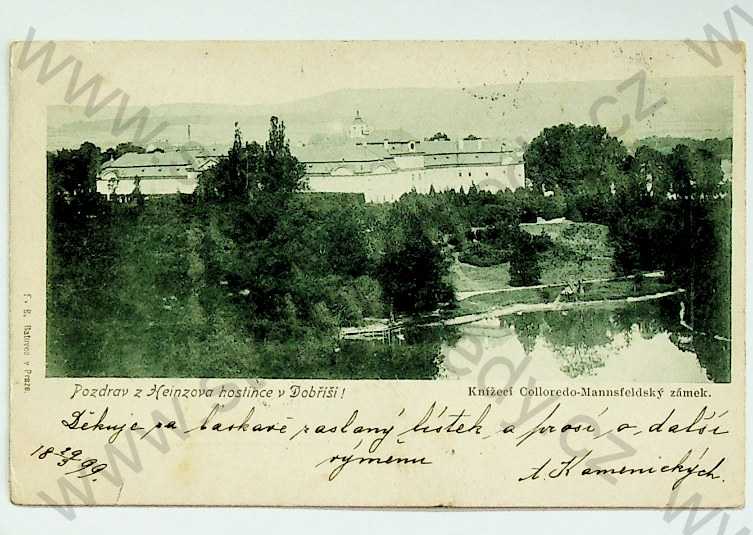 Pozdrav z Heinzova hostince v Dobříši!
Knížecí Colloredo-Mannsfeldský zámek.
Děkuje za laskavě zaslaný lístek, a prosí o další
výměnu
18 29/3 99. A. Kamenických.